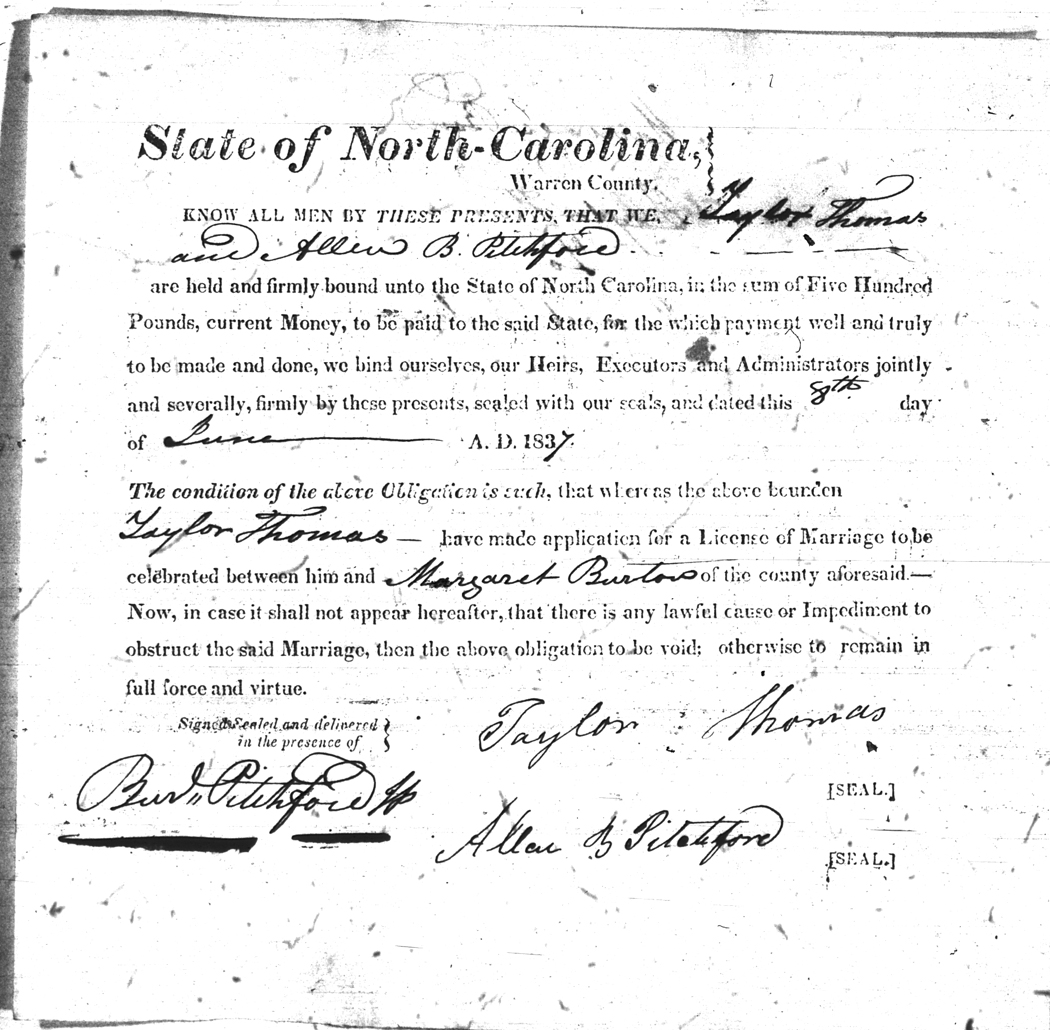 State of North-Carolina,
Warren County.
KNOW ALL MEN BY THESE PRESENTS, THAT WE, Taylor Thomas
and Allen B. Pitchford
are held and firmly bound unto the State of North Carolina, in the sum of Five Hundred
Pounds, current Money, to be paid to the said State, for the which payment well and truly
to be made and done, we bind ourselves, our Heirs, Executors and Administrators jointly
and severally, firmly by these presents, sealed with our seals, and dated this 8th day
of June A. D. 1837.
The condition of the above Obligation is such, that whereas the above bounden
Taylor Thomas — have made application for a License of Marriage to be
celebrated between him and Margaret Burton of the county aforesaid.—
Now, in case it shall not appear hereafter, that there is any lawful cause or Impediment to
obstruct the said Marriage, then the above obligation to be void; otherwise to remain in
full force and virtue.
Signed Sealed and delivered
in the presence of
Taylor Thomas
[SEAL.]
Pitchford
Allen B Pitchford
[SEAL.]